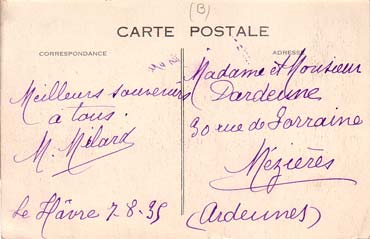 (B)
CARTE POSTALE
CORRESPONDANCE
ADRESSE
Meilleurs souvenirs
à tous.
M. Milard
Le Hâvre 7-8-35
Madame et Monsieur
Dardenne
30 rue de Lorraine
Mézières
(Ardennes)